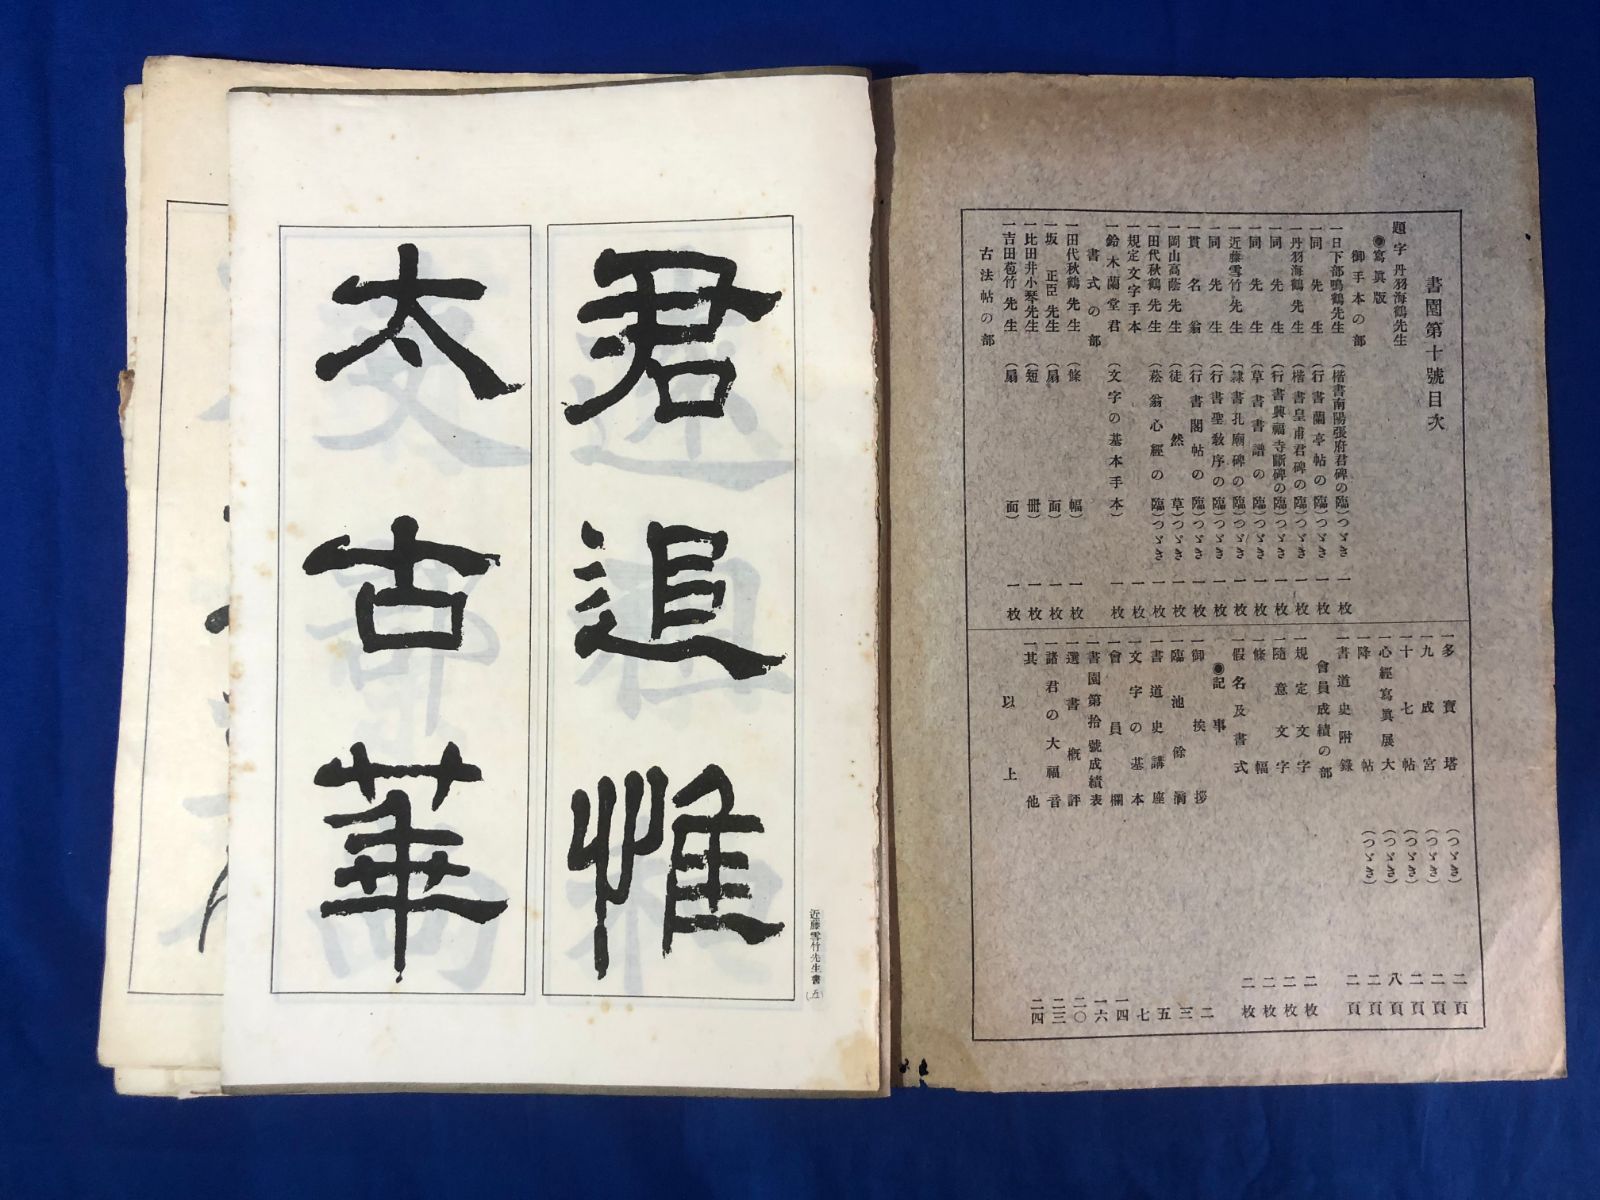 書園第十號目次
題字 丹羽海鶴先生
◉寫眞版
御手本の部
一日下部鳴鶴先生 (楷書南陽張府君碑の臨)つゞき 一枚
一同先生 (行書蘭亭帖の臨)つゞき 一枚
一丹羽海鶴先生 (楷書皇甫君碑の臨)つゞき 一枚
一同先生 (行書興福寺斷碑の臨)つゞき 一枚
一同先生 (草書書譜の臨)つゞき 一枚
一近藤雪竹先生 (隷書孔廟碑の臨)つゞき 一枚
一同先生 (行書聖敎序の臨)つゞき 一枚
一貫名翁 (行書閣帖の臨)つゞき 一枚
一岡山高蔭先生 (徒然草)つゞき 一枚
一田代秋鶴先生 (菘翁心經の臨)つゞき 一枚
一規定文字手本 一枚
一鈴木蘭堂君 (文字の基本手本) 一枚
書式の部
一田代秋鶴先生 (條幅) 一枚
一坂正臣先生 (扇面) 一枚
一比田井小琴先生 (短冊) 一枚
一吉田苞竹先生 (扇面) 一枚
古法帖の部
一多寶塔 (つゞき) 二頁
一九成宮 (つゞき) 二頁
一十七帖 (つゞき) 二頁
一心經寫眞展大 (つゞき) 八頁
一降帖 (つゞき) 二頁
一書道史附錄 二頁
會員成績の部
一規定文字 二枚
一隨意文字 二枚
一條幅 二枚
一假名及書式 二枚
◉記事
一御挨拶 二
一臨池餘滴 三
一書道史講座 五
一文字の基本 七
一會員欄 一四
一書園第拾號成績表 一六
一選書概評 二〇
一諸君の大福音 二三
一其他 二四
以上
君追惟
太古華
近藤雪竹先生書(五)